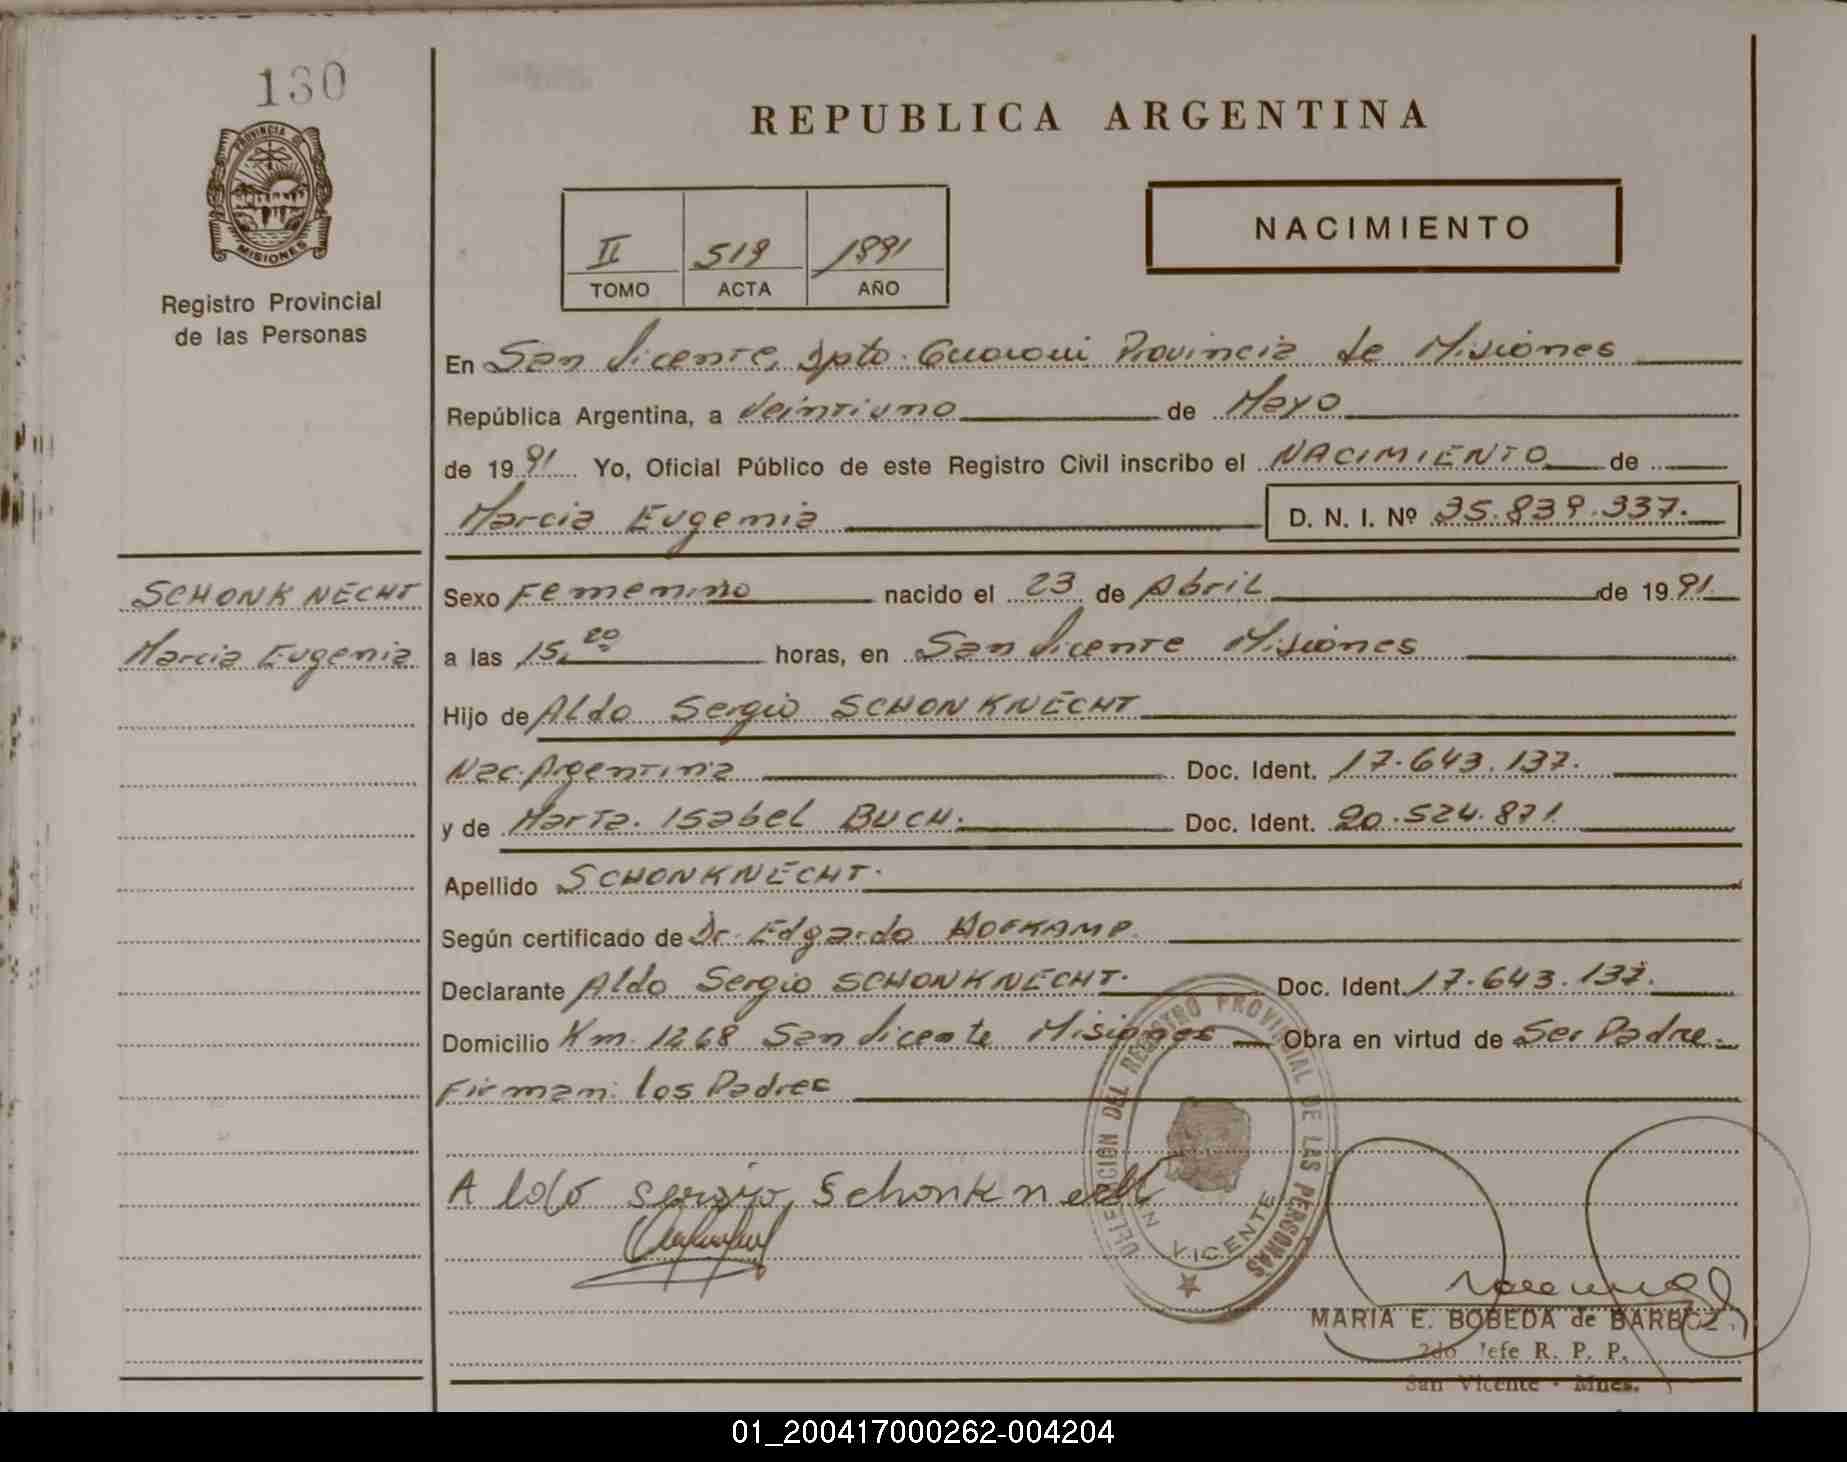 130
REPUBLICA ARGENTINA
PROVINCIA DE
MISIONES
Registro Provincial
de las Personas
NACIMIENTO
II 519 1991
TOMO ACTA AÑO
En San Vicente, Dpto. Guarani Provincia de Misiones
República Argentina, a Veintiuno de Mayo
de 1991 Yo, Oficial Público de este Registro Civil inscribo el NACIMIENTO de
Marcia Eugenia D. N. I. Nº 35.839.337.
SCHONKNECHT
Marcia Eugenia
Sexo Femenino nacido el 23 de Abril de 1991
a las 15,20 horas, en San Vicente Misiones
Hijo de Aldo Sergio SCHONKNECHT
Nac. Argentina Doc. Ident. 17.643.137.
y de Marta. Isabel BUCH. Doc. Ident. 20.524.871
Apellido SCHONKNECHT.
Según certificado de Dr. Edgardo HOFKAMP.
Declarante Aldo Sergio SCHONKNECHT. Doc. Ident. 17.643.137.
Domicilio Km. 1268 San Vicente Misiones Obra en virtud de Ser Padre.
Firman: los Padres
DELEGACION DEL REGISTRO PROVINCIAL DE LAS PERSONAS
VICENTE
Aldo sergio, Schonknecht
MARIA E. BOBEDA de BARBOZ
2do Jefe R. P. P.
San Vicente - Mnes.
01_200417000262-004204